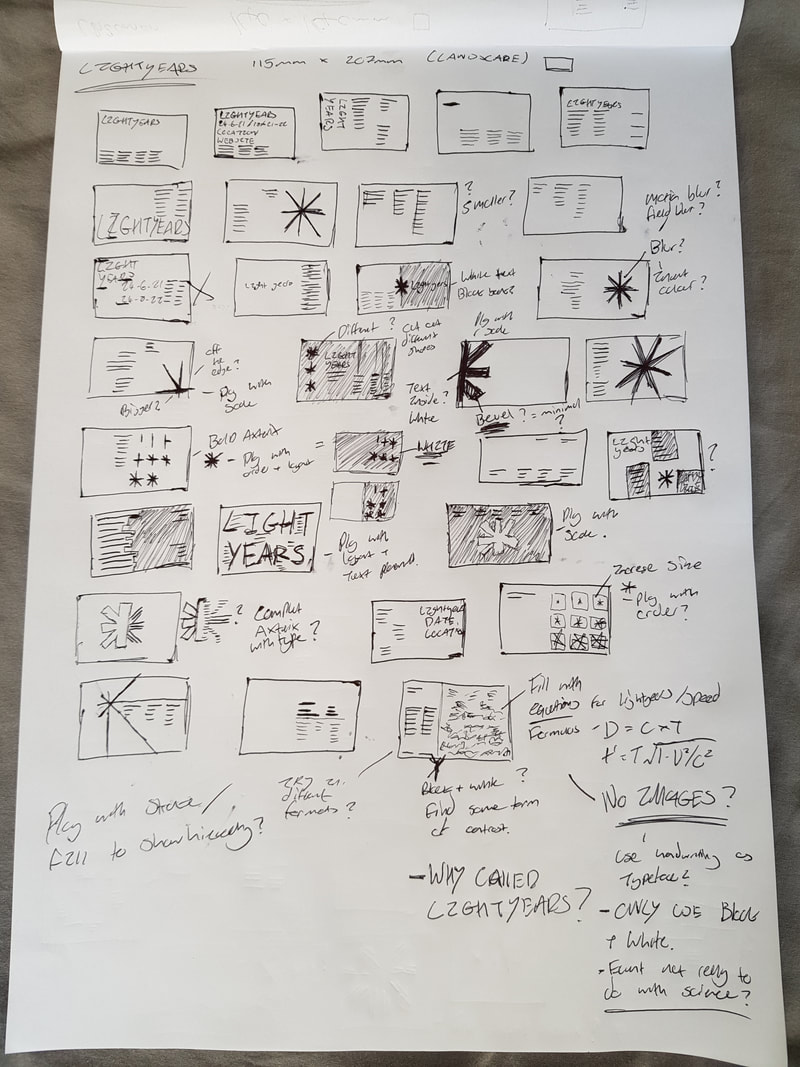 LIGHTYEARS 115mm x 202mm (LANDSCAPE)
LIGHTYEARS
LIGHTYEARS
LOCATION
WEBSITE
LIGHT
YEARS
LIGHTYEARS
LIGHTYEARS
?
Smaller?
motion blur?
field blur?
LIGHT
YEARS
24-6-21
Light years
White text
Black boxes?
Blur?
colour?
off
the
edge?
Bigger?
- Play with
Scale
Different?
LIGHT
YEARS
cut out
different
shapes
Play with
scale
Text
inside?
White
Bevel? = minimal
?
BOLD Axterix
- Play with
order + layout
=
WHITE
Light
years
?
LIGHT
YEARS
- Play with
layout +
Text placement.
Play with
Scale.
?
Conflict
Axterix
with type?
Lightyears
DATE
LOCATION
Increase Size
- Play with
order?
Fill with
equations for lightyears/speed
Formulas - D = C x T
t' = T√1-V²/C²
Try in
different
formats?
Black + white?
Find some form
of contrast.
Play with stroke/
Fill to show hierarchy?
- WHY CALLED
LIGHTYEARS?
NO IMAGES?
Use handwriting as
Typeface?
- ONLY use Black
+ White.
- Event not really to
do with science?